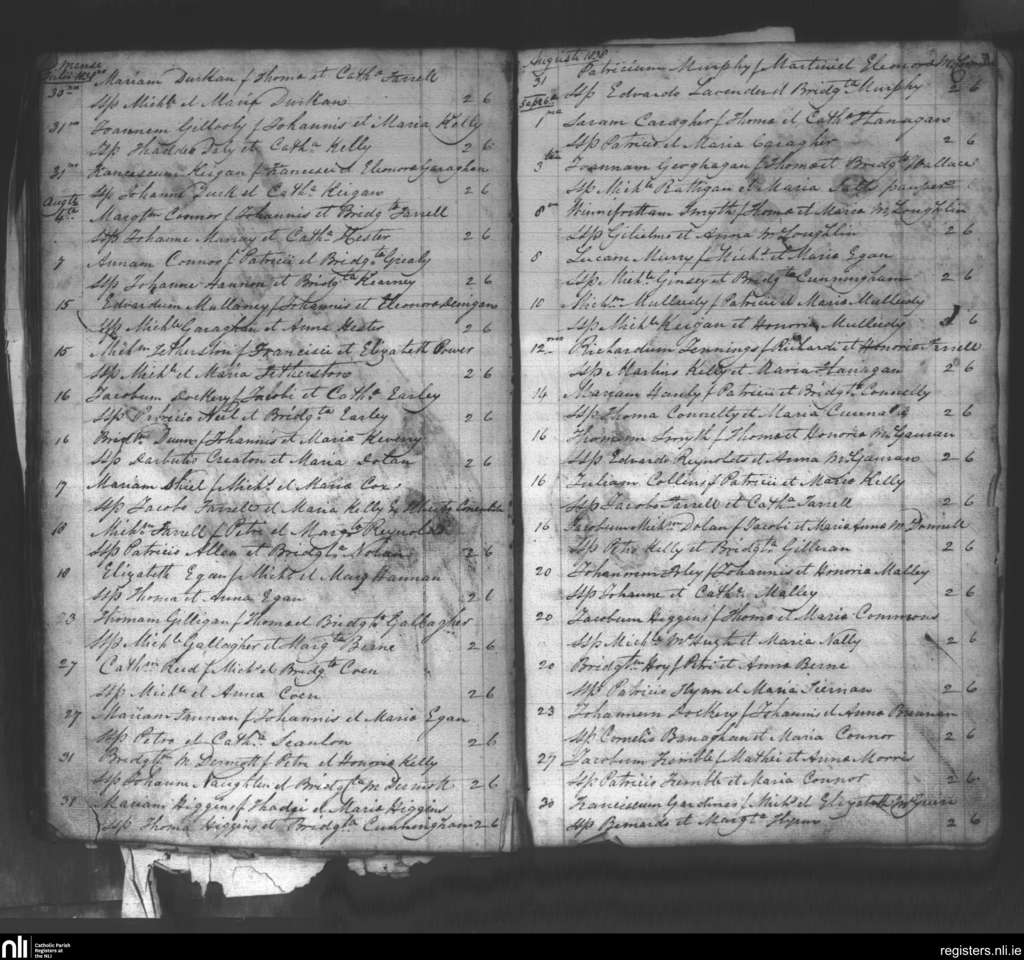 mense
Julii 1838
30mo Mariam Durkan f Thoma et Catha Farrell
Ssp Michle et Maria Durkan 2 6
31mo Joannem Gillooly f Johannis et Maria Kelly
Ssp Thaddeo Daly et Catha Kelly 2 6
31mo Franciscum Keigan f Francisci et Elenora Garaghan
Ssp Johanne et Catha Keigan 2 6
Augti
4to Margtm Connor f Johannis et Bridgta Farrell
Ssp Johanne Murray et Catha Hester 2 6
7 Annam Connor f Patricii et Bridgta Grealy
Ssp Johanne Hannon et Bridgta Kearney 2 6
15 Edvardum Mullaney f Johannis et Elenora Denigan
Ssp Michle Garaghan et Anna Hester 2 6
15 Michm Fetherston f Francisci et Elizabeth Power
Ssp Michle et Maria Fetherston 2 6
16 Jacobum Dockery f Jacobi et Catha Earley
Ssp Patricio et Bridgta Earley 2 6
16 Bridgtm Dunn f Johannis et Maria Keveny
Ssp Darbutio Creaton et Maria Dolan 2 6
17 Mariam Shiel f Michl et Maria Cox
Ssp Jacobo Farrell et Maria Kelly
18 Michm Farrell f Petri et Margta Reynolds
Ssp Patricio Allen et Bridgta Nolan 2 6
18 Elizabeth Egan f Michl et Marg Hannan
Ssp Thoma et Anna Egan 2 6
23 Thomam Gilligan f Thoma et Bridgta Gallagher
Ssp Michle Gallagher et Margta Beirne 2 6
27 Cathm Reed f Michl et Bridgta Coen
Ssp Michle et Anna Coen 2 6
27 Mariam Farnan f Johannis et Maria Egan
Ssp Petro et Catha Scanlon 2 6
31 Bridgtm McDermott f Petri et Honoria Kelly
Ssp Johanne Naughten et Bridgta McDermott 2 6
31 Mariam Higgins f Thadei et Maria Higgins
Ssp Thoma Higgins et Bridgta Cunningham 2 6
Augusti 1838
31 Patricium Murphy f Martini et Elenora
Ssp Edvardo Lavender et Bridgta Murphy 2 6
Septe
1mo Saram Caragher f Thoma et Catha Flanagan
Ssp Patricio et Maria Caragher 2 6
3tio Joannam Geoghagan f Thoma et Bridgta Wallace
Ssp Michle Rattigan et Maria pauper
8 Winnifrettam Smyth f Thoma et Maria McLoughlin
Ssp Gilielmo et Anna McLoughlin 2 6
8 Lucam Murry f Michl et Maria Egan
Ssp Michle Ginsey et Bridgta Cunningham 2 6
10 Michm Mulledy f Patricii et Maria Mulledy
Ssp Michle Keigan et Honoria Mulledy 2 6
12mo Richardum Jennings f Richardi et Honoria Farrell
Ssp Martino Kelly et Maria Flanagan 2 6
14 Mariam Hanly f Patricii et Bridgta Connelly
Ssp Thoma Connelly et Maria 2 6
16 Thomam Smyth f Thoma et Honoria McGauran
Ssp Edvardo Reynolds et Anna McGauran 2 6
16 Juliam Collins f Patricii et Maria Kelly
Ssp Jacobo Farrell et Catha Farrell 2 6
16 Jacobum Michm Dolan f Jacobi et Maria Anna McDonnell
Ssp Petro Kelly et Bridgta Gilleran 2 6
20 Johannem f Johannis et Honoria Malley
Ssp Johanne et Catha Malley 2 6
20 Jacobum Higgins f Thoma et Maria Commons
Ssp Michle McHugh et Maria Nally 2 6
20 Bridgtm Hoy f Petri et Anna Berne
Ssp Patricio Flynn et Maria Tiernan 2 6
23 Johannem Dockery f Johannis et Anna Brennan
Ssp Cornelio Banaghan et Maria Connor 2 6
27 Jacobum Kemble f Mathei et Anna Morris
Ssp Patricio Kemble et Maria Connor 2 6
30 Franciscum Gardiner f Michl et Elizabeth
Ssp Bernardo et Margta Flynn 2 6
nli
Catholic Parish
Registers at
the NLI
registers.nli.ie